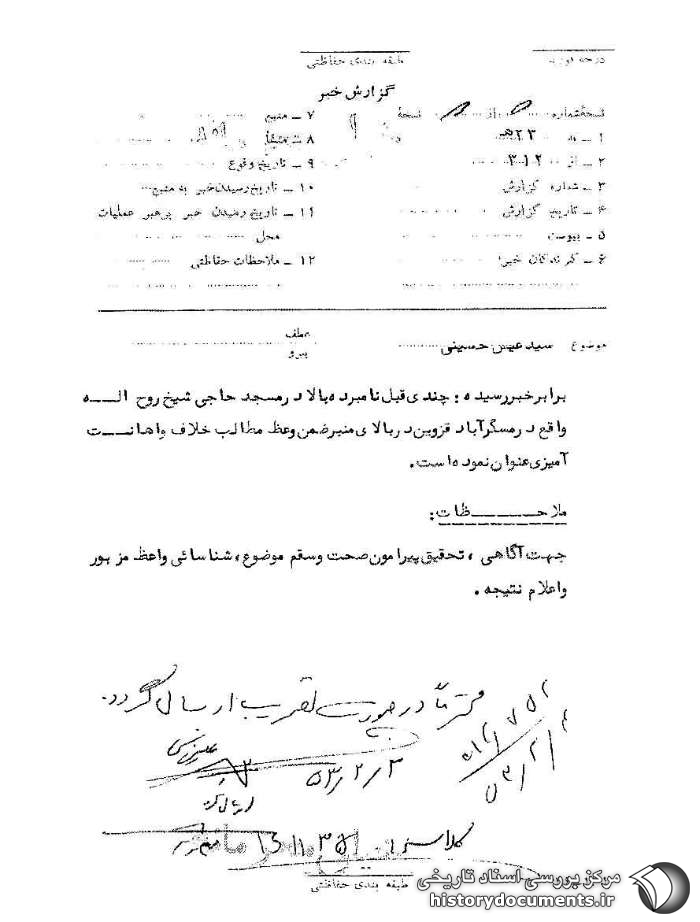 طبقه بندی حفاظتی
گزارش خبر
نسخه شماره از نسخه
۱ ــ به ۲۳ هـ
۲ ــ از ۳۱۲
۳ ــ شماره گزارش
۴ ــ تاریخ گزارش
۵ ــ پیوست
۶ ــ گیرندگان خبر
۷ ــ منبع
۸ ــ منشأ
۹ ــ تاریخ وقوع
۱۰ ــ تاریخ رسیدن خبر به منبع
۱۱ ــ تاریخ رسیدن خبر برهبر عملیات
محل
۱۲ ــ ملاحظات حفاظتی
موضوع سید عیسی حسینی
عطف
پیرو
برابر خبر رسیده : چندی قبل نامبرده بالا در مسجد حاجی شیخ روح الــه
واقع در مسگرآباد قزوین در بالای منبر ضمن وعظ مطالب خلاف و اهانــت
آمیزی عنوان نموده است .
ملاحــــظات :
جهت آگاهی ، تحقیق پیرامون صحت وسقم موضوع ، شناسائی واعظ مزبور
واعلام نتیجه .
در صورت تصویب ارسال گردد.
۵۳/۲/۳
ارسال
طبقه بندی حفاظتی
مرکز بررسی اسناد تاریخی
historydocuments.ir